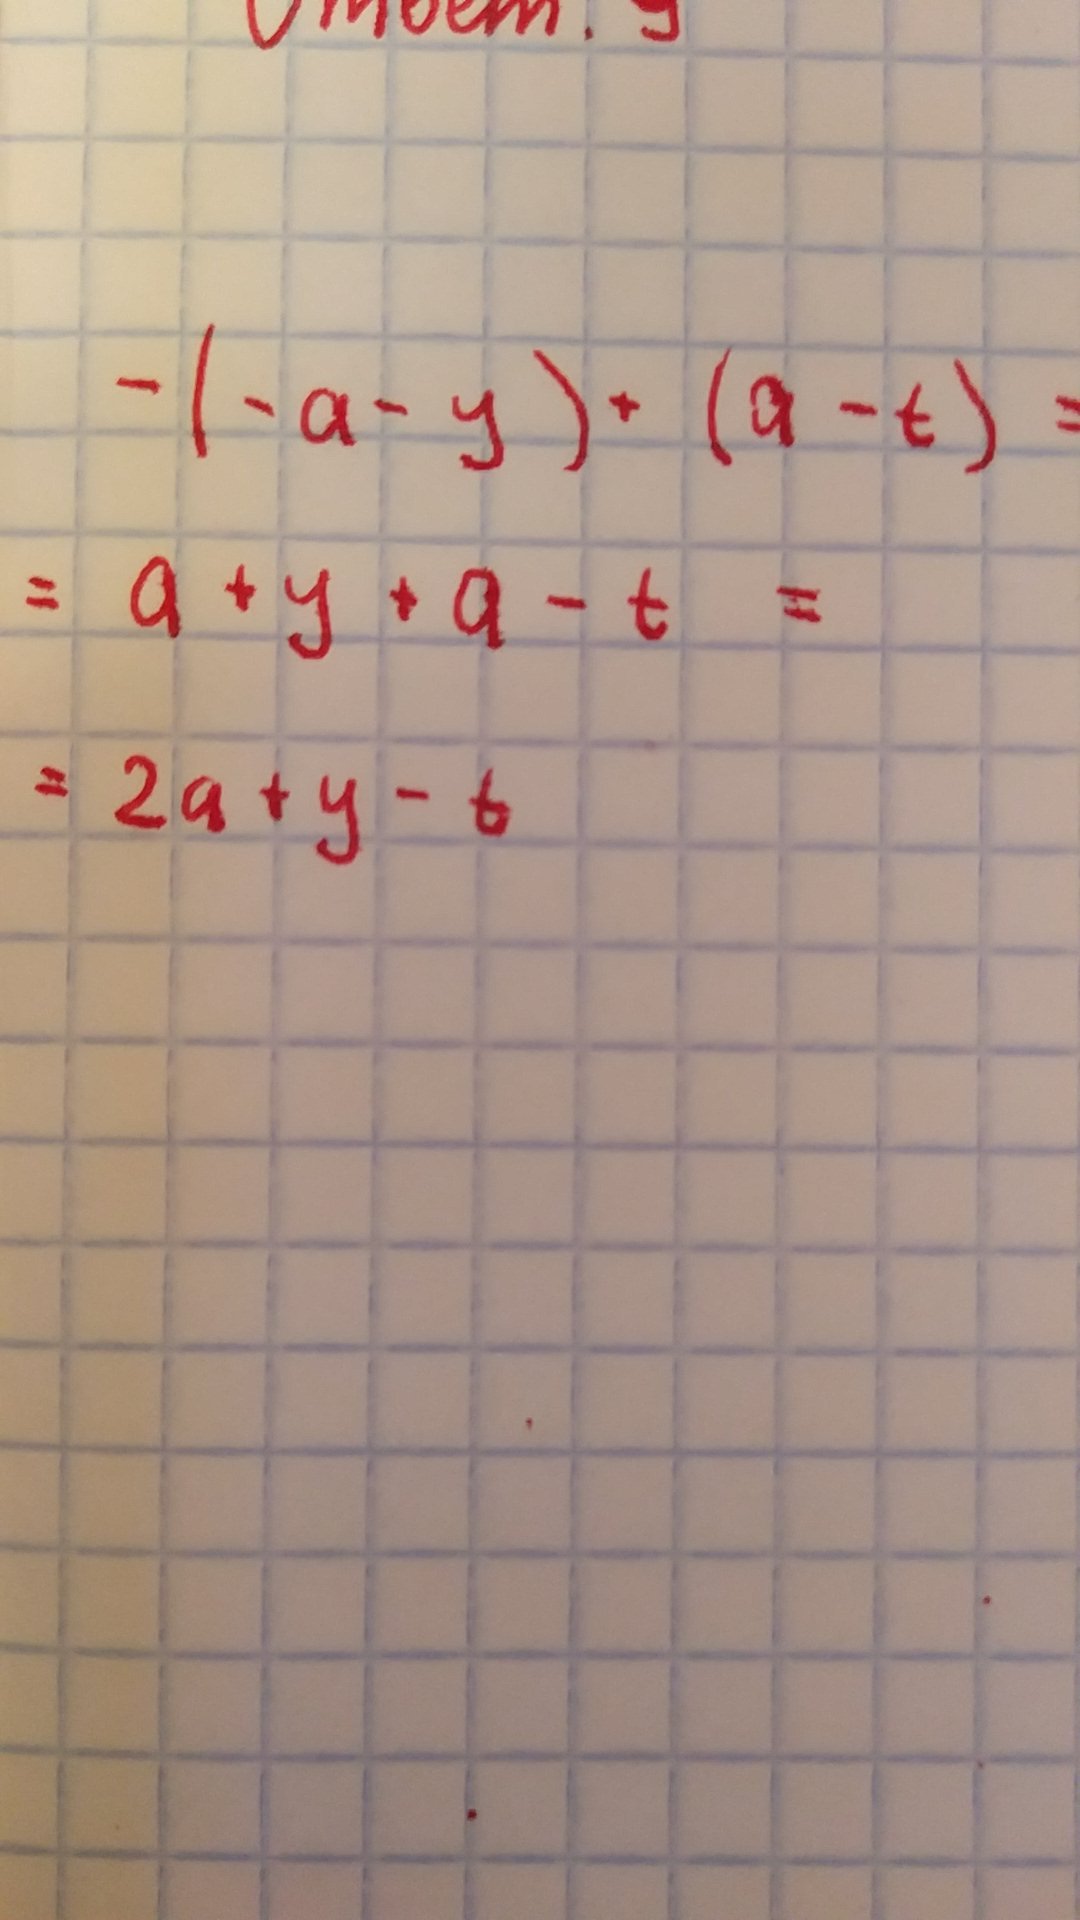 Ответ: 9
-(-a-y)+(a-t)=
= a+y+a-t =
= 2a+y-t